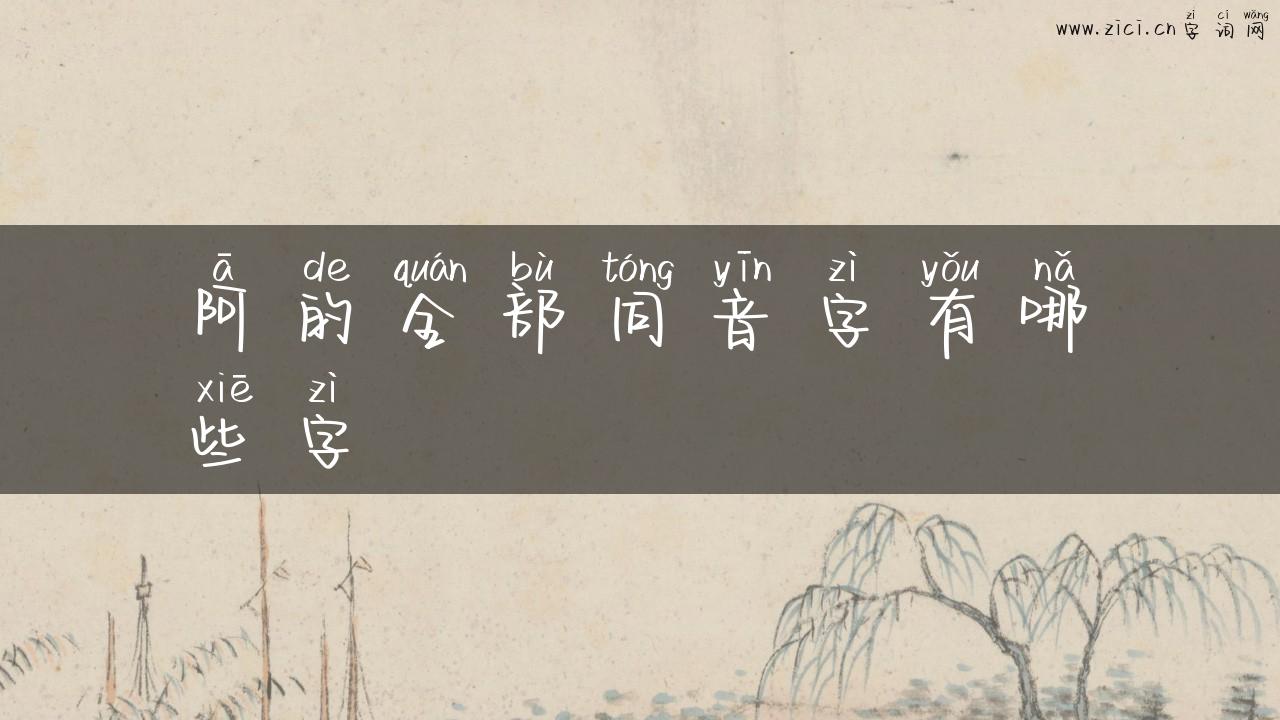 zì cí wǎng
www.zici.cn 字词网
ā de quán bù tóng yīn zì yǒu nǎ
阿的全部同音字有哪
xiē zì
些字